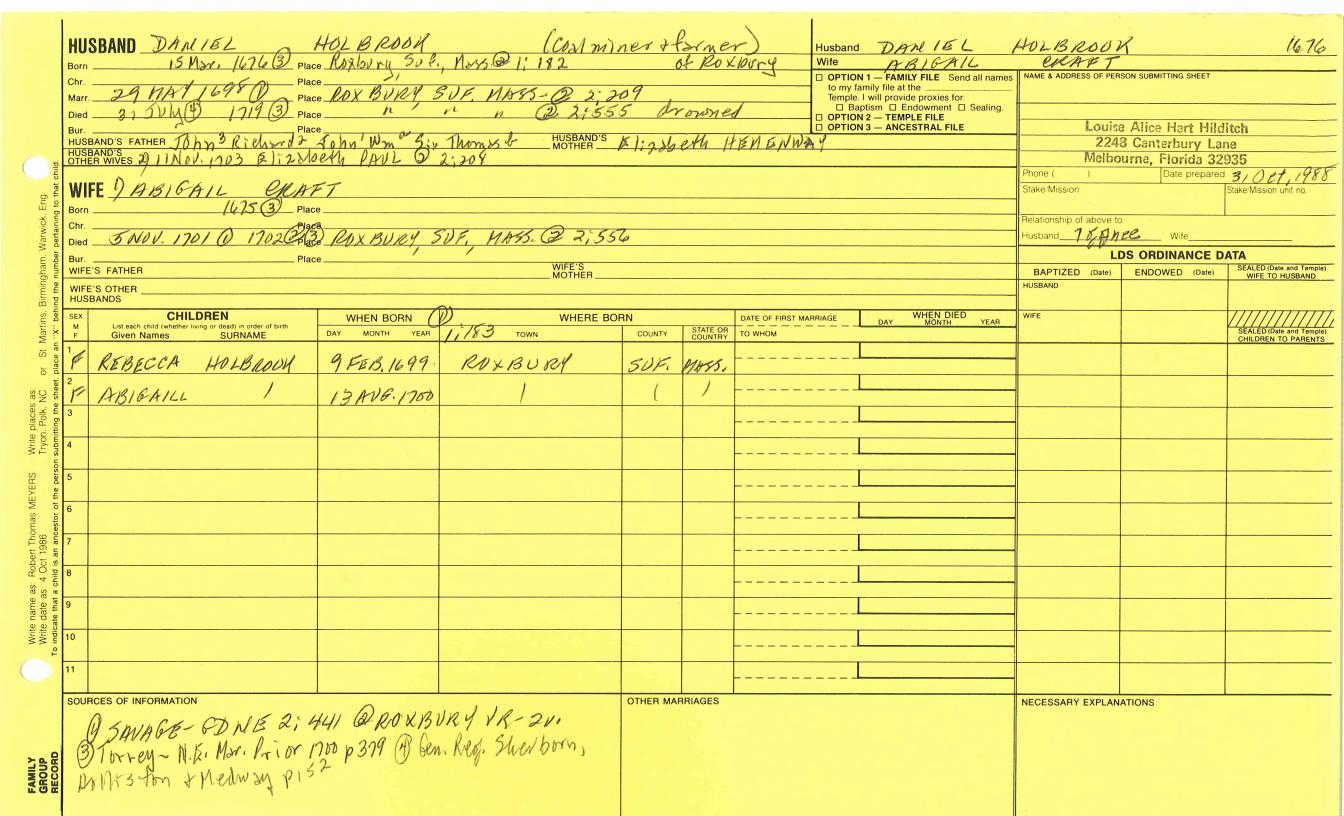 HUSBAND DANIEL HOLBROOK (Coalminer & farmer)
Born 15 Mar. 1676 ③ Place Roxbury, Suf., Mass. ② 1; 182 of Roxbury
Chr. Place
Marr. 29 MAY 1698 ① Place ROXBURY, SUF. MASS- ② 2;209
Died 31 July ④ 1719 ③ Place " " " ② 2;555 drowned
Bur. Place
HUSBAND'S FATHER John³ Richard² John¹ Wmᵃ Thomas HUSBAND'S MOTHER Elizabeth HEMENWAY
HUSBAND'S OTHER WIVES 2) 11 Nov. 1703 Elizabeth PAUL ② 2;209
WIFE 1) ABIGAIL CRAFT
Born 1675 ③ Place
Chr. Place
Died 5 NOV. 1701 ① 1702 ② ③ Place ROXBURY, SUF, MASS. ② 2;556
Bur. Place
WIFE'S FATHER WIFE'S MOTHER
WIFE'S OTHER HUSBANDS
Husband DANIEL HOLBROOK 1676
Wife ABIGAIL CRAFT
☐ OPTION 1 — FAMILY FILE Send all names
to my family file at the
Temple. I will provide proxies for
☐ Baptism ☐ Endowment ☐ Sealing.
☐ OPTION 2 — TEMPLE FILE
☐ OPTION 3 — ANCESTRAL FILE
NAME & ADDRESS OF PERSON SUBMITTING SHEET
Louise Alice Hart Hilditch
2243 Canterbury Lane
Melbourne, Florida 32935
Phone ( ) Date prepared 31 Oct, 1988
Stake Mission Stake Mission unit no.
Relationship of above to
Husband Wife
LDS ORDINANCE DATA
BAPTIZED (Date) ENDOWED (Date) SEALED (Date and Temple) WIFE TO HUSBAND
HUSBAND
WIFE
SEALED (Date and Temple) CHILDREN TO PARENTS
SEX M F
CHILDREN
List each child (whether living or dead) in order of birth
Given Names SURNAME
WHEN BORN ① WHERE BORN
DAY MONTH YEAR 1;183 TOWN COUNTY STATE OR COUNTRY
DATE OF FIRST MARRIAGE
TO WHOM
WHEN DIED
DAY MONTH YEAR
1 F REBECCA HOLBROOK 9 FEB. 1699 ROXBURY SUF. MASS.
2 F ABIGAILL 13 AUG. 1700
3
4
5
6
7
8
9
10
11
SOURCES OF INFORMATION
① SAVAGE- GDNE 2; 441 ② ROXBURY VR- 2v.
③ Torrey- N.E. Mar. Prior 1700 p 379 ④ Gen. Reg. Sherborn,
Holliston & Medway p152
OTHER MARRIAGES
NECESSARY EXPLANATIONS
FAMILY GROUP RECORD
Write name as Robert Thomas MEYERS Write places as Tryon, Polk, NC or St Martins, Birmingham, Warwick, Eng.
Write date as 4 Oct 1986
To indicate that a child is an ancestor of the person submitting the sheet, place an "X" behind the number pertaining to that child